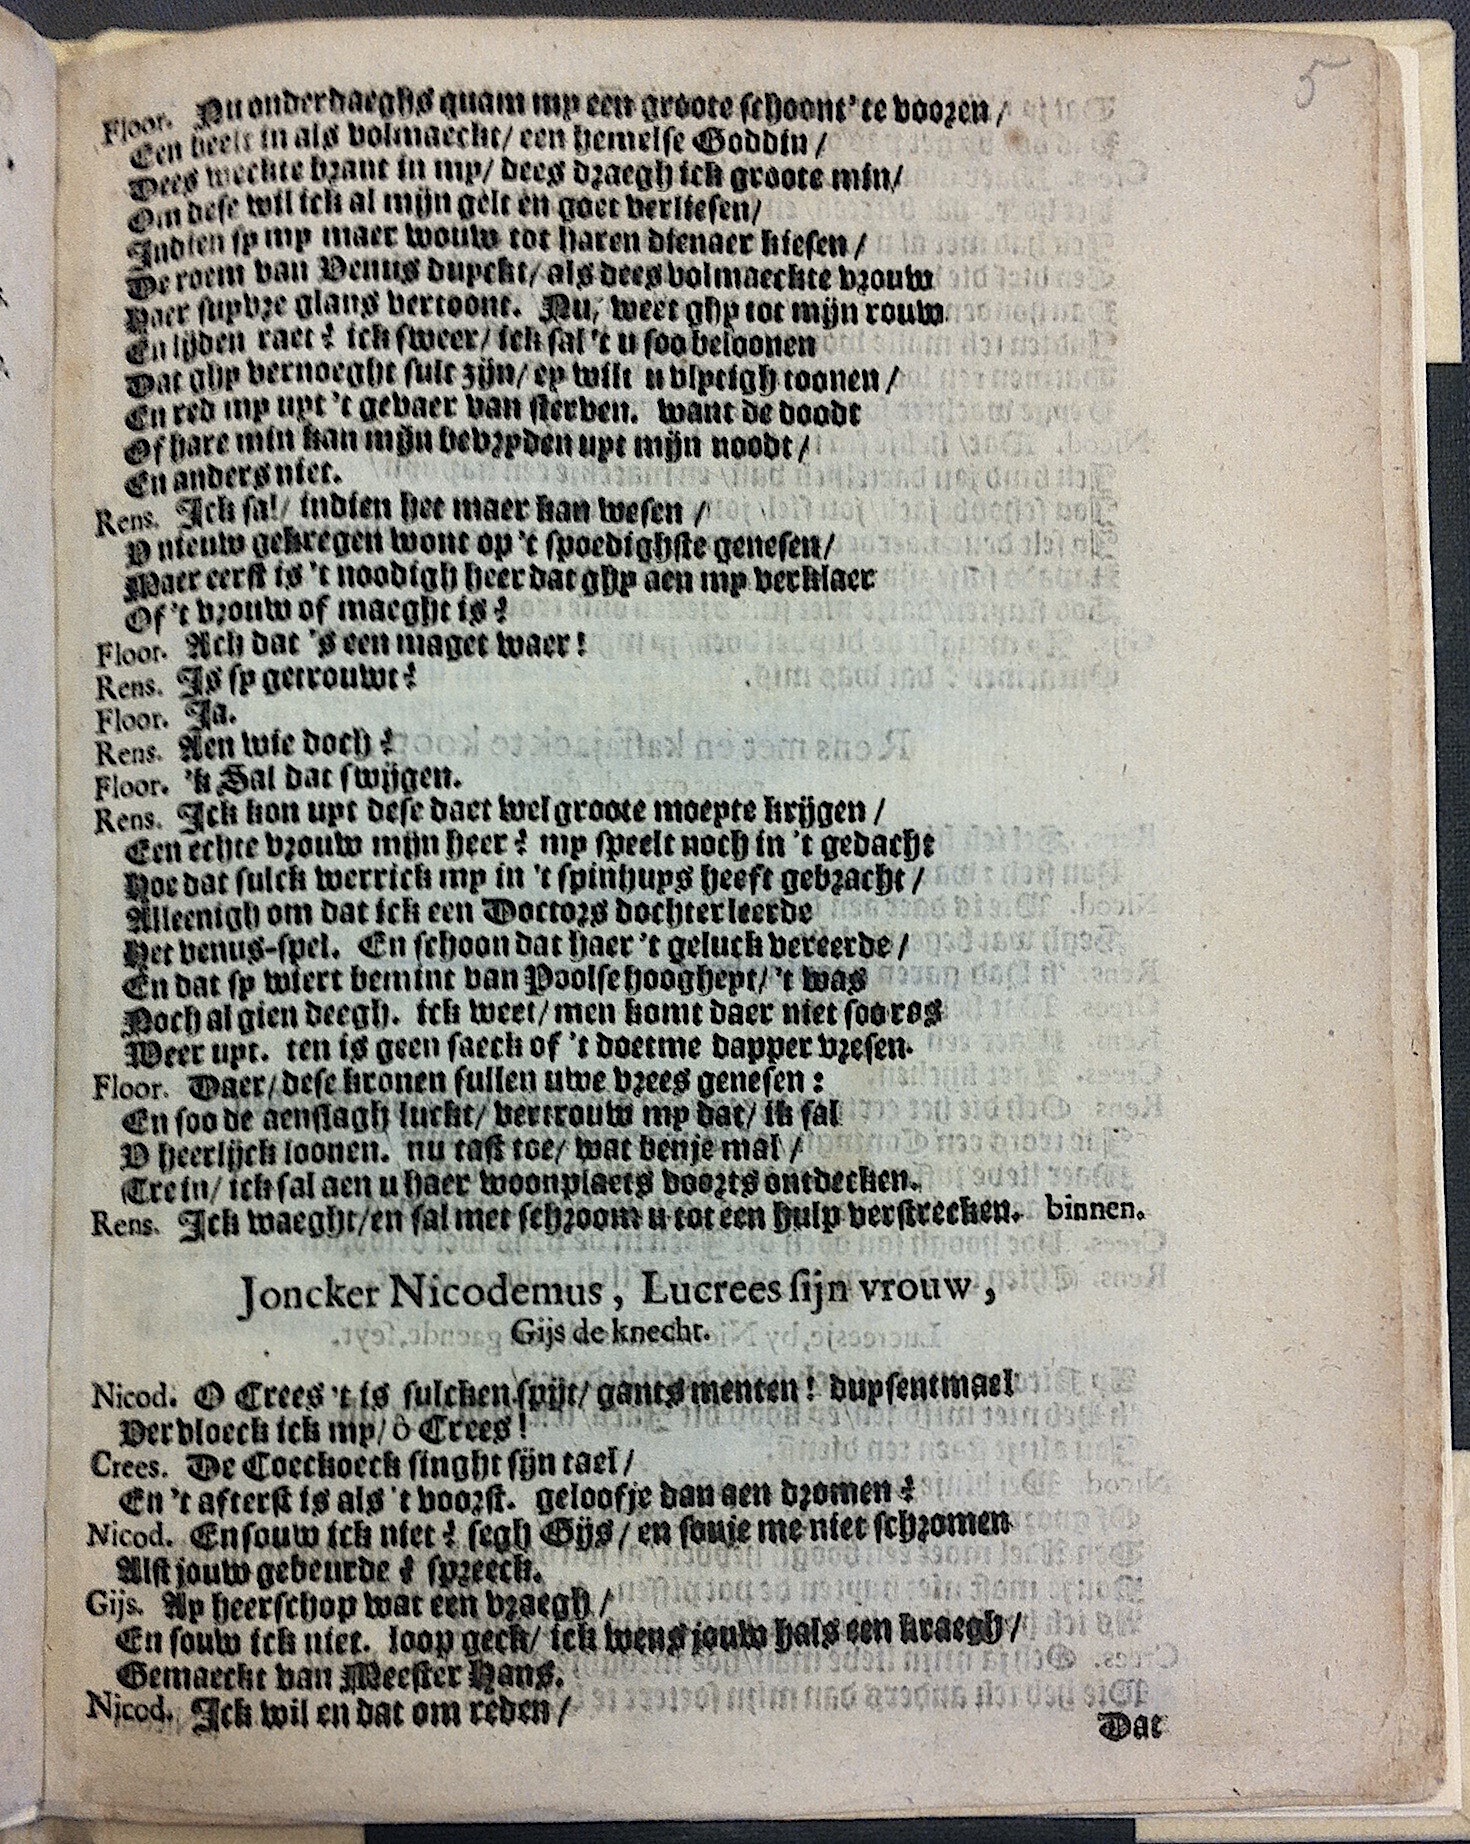 5
Floor. Nu onderdaeghs quam my een groote schoont' te vooren /
Een beelt in als volmaeckt / een hemelse Goddin /
Dees weckte brant in my / dees draegh ick groote min /
Om dese wil ick al mijn gelt en goet verliesen /
Indien sy my maer wouw tot haren dienaer kiesen /
De roem van Venus duyckt / als dees volmaeckte vrouw
Haer suyvre glans vertoont. Nu, weet ghy tot mijn rouw
En lijden raet? ick sweer / ick sal 't u soo beloonen
Dat ghy vernoeght sult zijn / ey wilt u vlytigh toonen /
En red my uyt 't gevaer van sterven. want de doodt
Of hare min kan mijn bevryden uyt mijn noodt /
En anders niet.
Rens. Ick sal / indien het maer kan wesen /
V nieuw gekregen wont op 't spoedighste genesen /
Maer eerst is 't noodigh heer dat ghy aen my verklaer
Of 't vrouw of maeght is?
Floor. Ach dat 's een maget waer!
Rens. Is sy getrouwt?
Floor. Ja.
Rens. Aen wie doch?
Floor. 'k Sal dat swijgen.
Rens. Ick kon uyt dese daet wel groote moeyte krijgen /
Een echte vrouw mijn heer? my speelt noch in 't gedacht
Hoe dat sulck werrick my in 't spinhuys heeft gebracht /
Alleenigh om dat ick een Doctors dochter leerde
Het venus-spel. En schoon dat haer 't geluck vereerde /
En dat sy wiert bemint van Poolse hoogheyt / 't was
Noch al gien deegh. ick weet / men komt daer niet soo ras
Weer uyt. ten is geen saeck of 't doetme dapper vresen.
Floor. Daer / dese kronen sullen uwe vrees genesen:
En soo de aenslagh luckt / vertrouw my dat / ik sal
V heerlijck loonen. nu tast toe / wat benje mal /
Tre in / ick sal aen u haer woonplaets voorts ontdecken.
Rens. Ick waeght / en sal met schroom u tot een hulp verstrecken. binnen.
Joncker Nicodemus, Lucrees sijn vrouw,
Gijs de knecht.
Nicod. O Crees 't is sulcken spijt / gants menten! duysentmael
Vervloeck ick my / ô Crees!
Crees. De Coeckoeck singht sijn tael /
En 't afterst is als 't voorst. geloofje dan aen dromen?
Nicod. En souw ick niet? segh Gijs / en souje me niet schromen
Alst jouw gebeurde? spreeck.
Gijs. Ay heerschop wat een vraegh /
En souw ick niet. loop geck / ick wens jouw hals een kraegh /
Gemaeckt van Meester Hans.
Nicod. Ick wil en dat om reden /
Dat